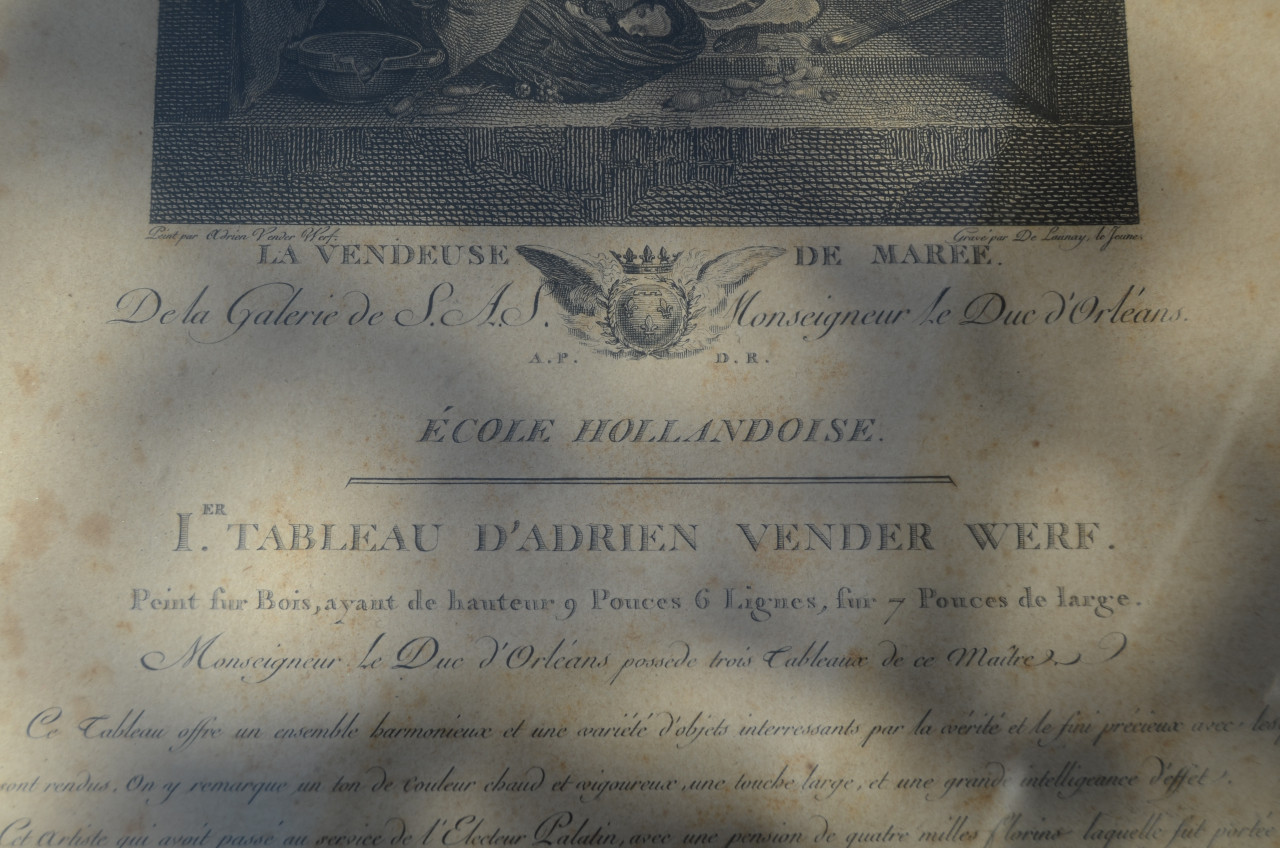 Peint par Adrien Vender Werf.
Gravé par De Launay, le Jeune.
LA VENDEUSE DE MARÉE.
De la Galerie de S.A.S. Monseigneur le Duc d'Orléans.
A.P. D.R.
ÉCOLE HOLLANDOISE.
I.ER TABLEAU D'ADRIEN VENDER WERF.
Peint sur Bois, ayant de hauteur 9 Pouces 6 Lignes, sur 7 Pouces de large.
Monseigneur le Duc d'Orléans possede trois Tableaux de ce Maître.
Ce Tableau offre un ensemble harmonieux et une variété d'objets interressants par la vérité et le fini précieux avec les
sont rendus. On y remarque un ton de couleur chaud et vigoureux, une touche large, et une grande intelligeance d'effet.
Cet Artiste qui avoit passé au service de l'Electeur Palatin, avec une pension de quatre milles florins laquelle fut portée